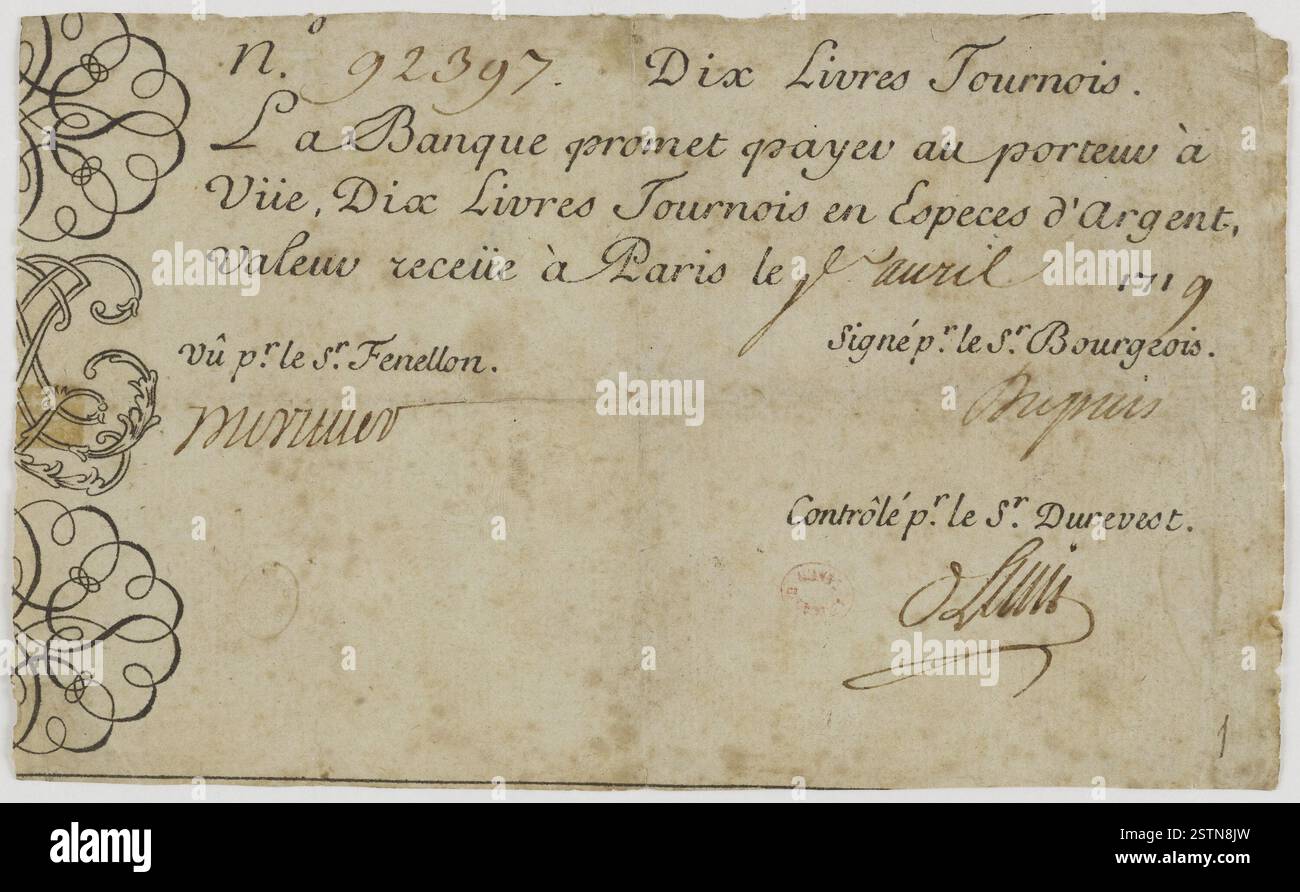 n.º 92397. Dix Livres Tournois.
La Banque promet payer au porteur à
Vüe, Dix Livres Tournois en Especes d'Argent,
Valeur receüe à Paris le avril 1719
Vû p.r le S.r Fenellon.
Signé p.r le S.r Bourgeois.
Contrôlé p.r le S.r Durevest.
1
alamy
Image ID: 2STN8JW
www.alamy.com